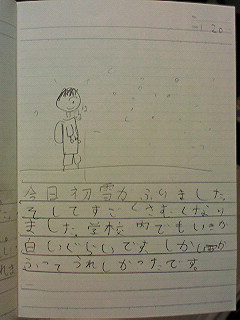 1 20
今日初雪がふりました。
そしてすごくさむくなり
ました。学校内でもいきが
白いぐらいです。しかし雪が
ふってうれしかったです。